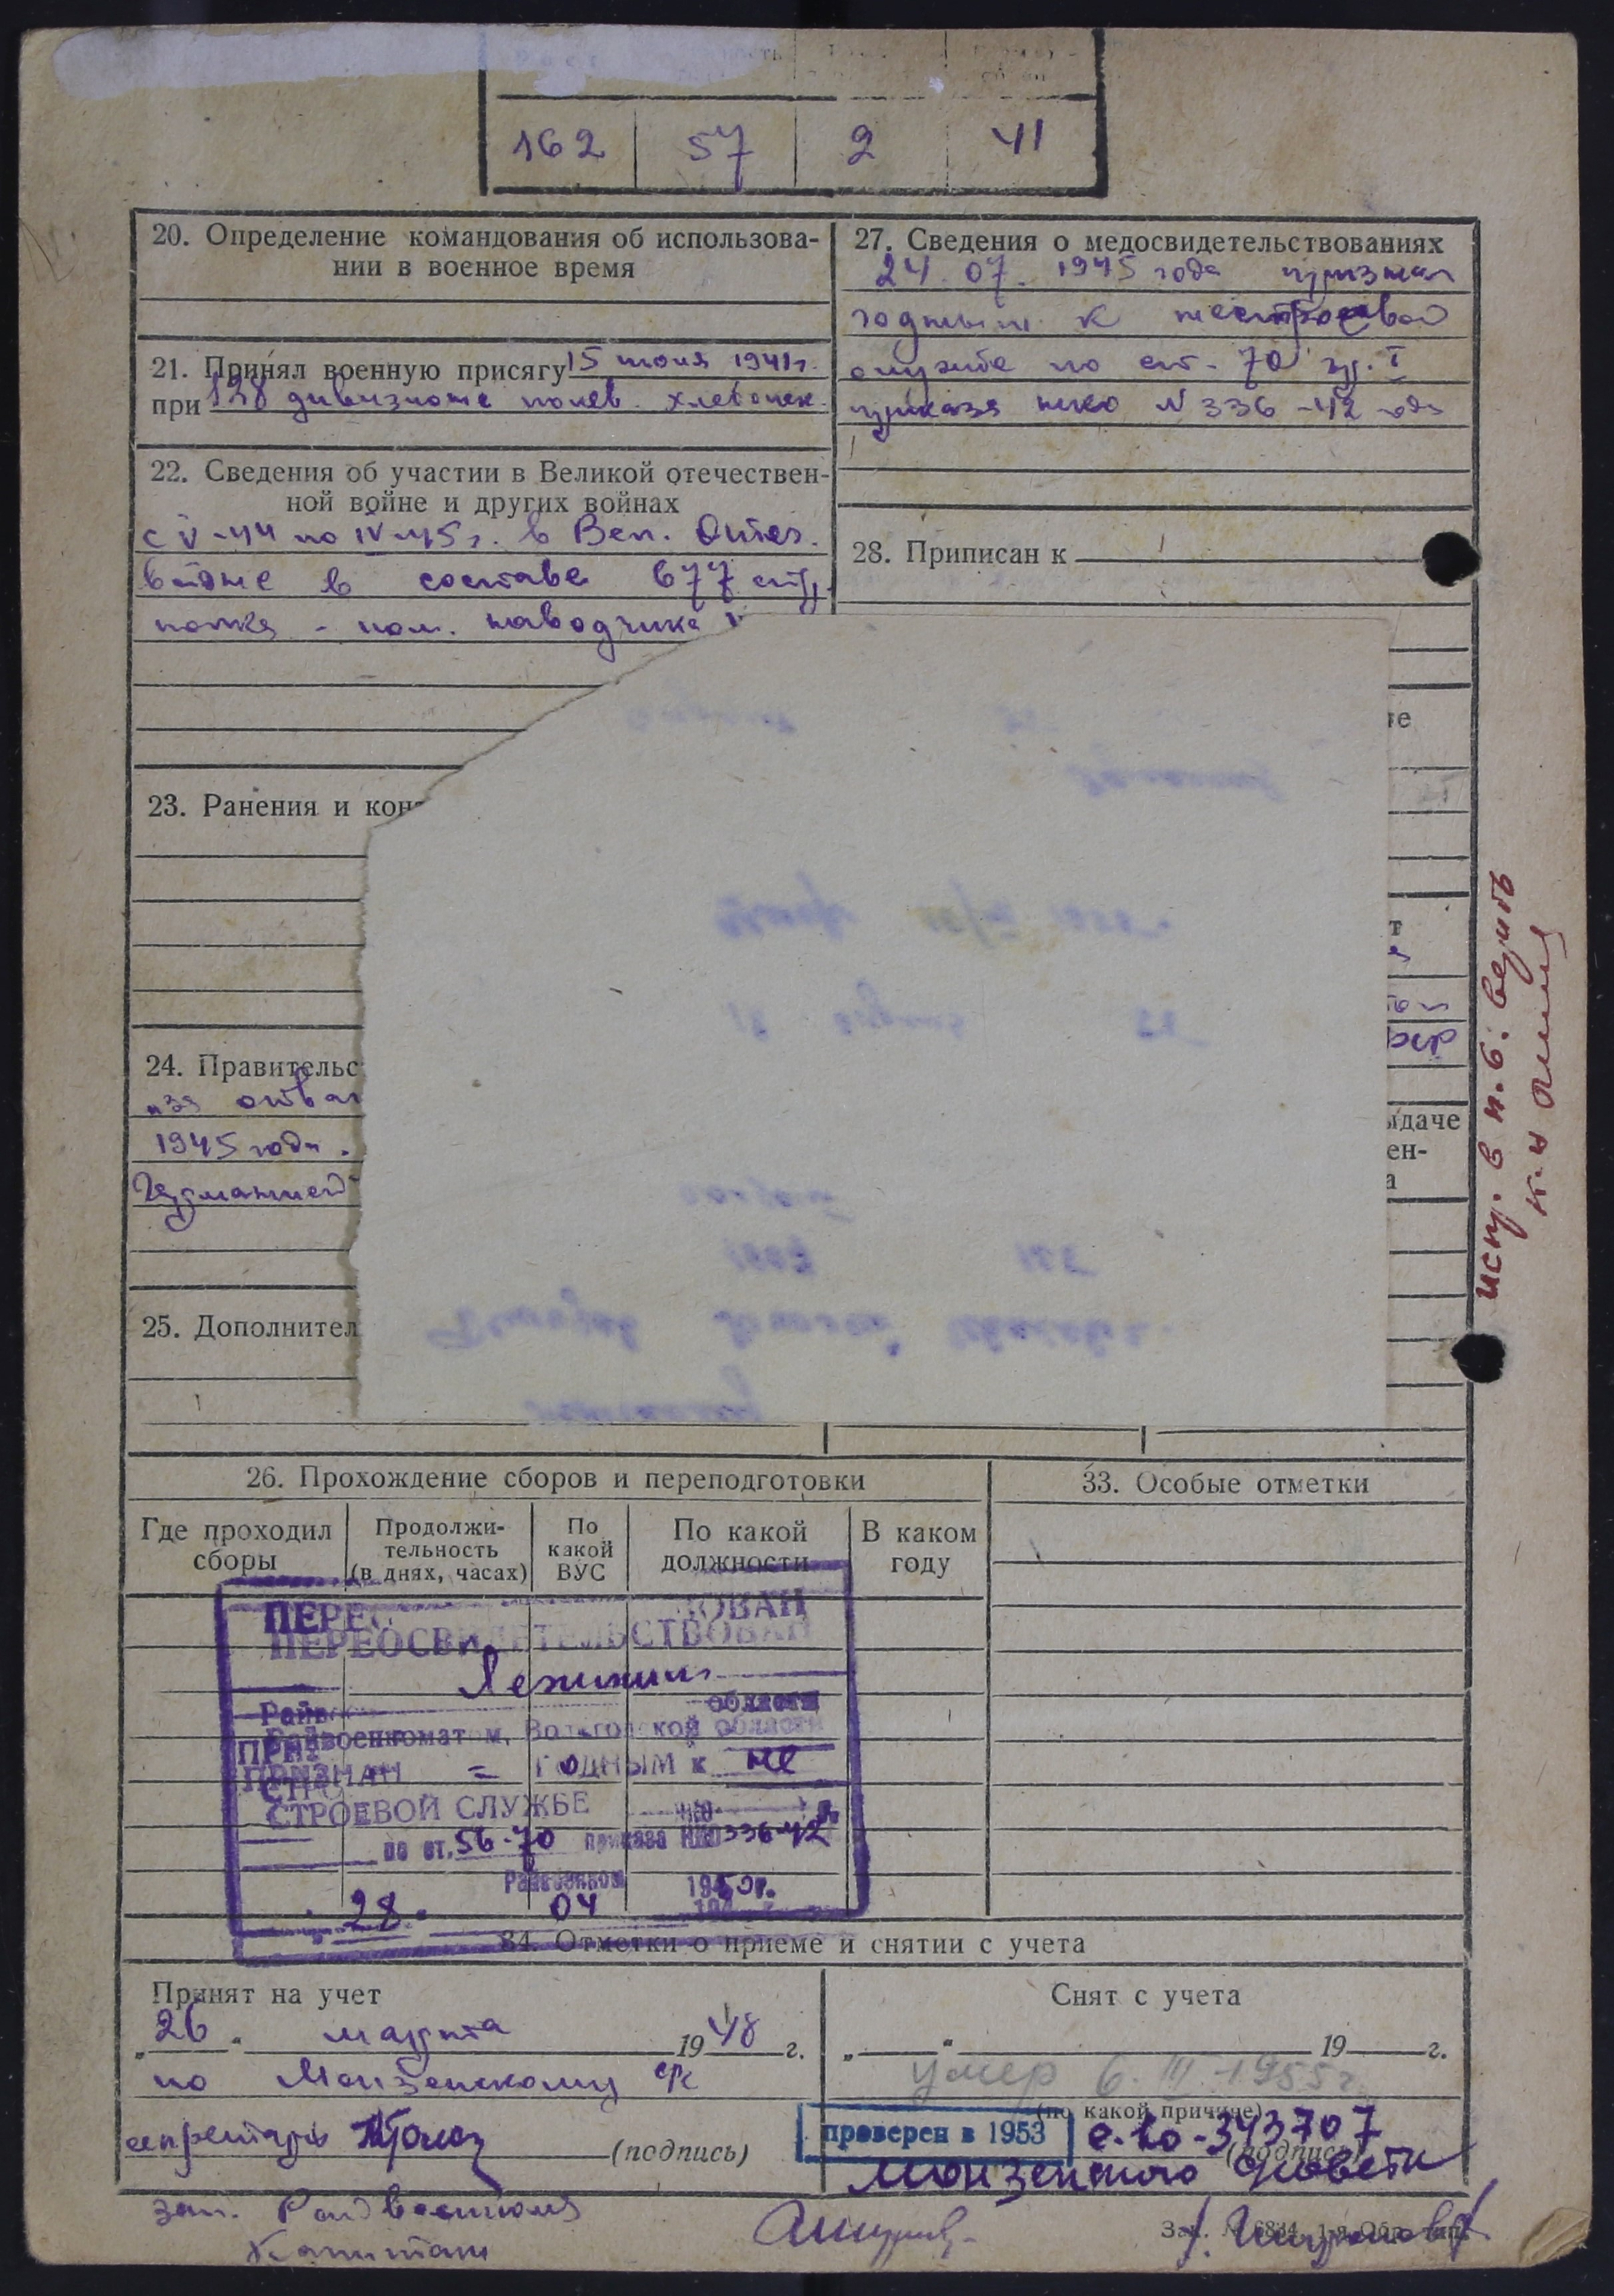 162 57 2 41
20. Определение командования об использова-
нии в военное время
21. Принял военную присягу 15 июня 1941г.
при 138 дивизионе полев. хлебопек.
22. Сведения об участии в Великой отечествен-
ной войне и других войнах
с V-44 по IV-45г. в Вел. Отеч.
войне в составе 677 стр.
полка - пом. наводчика
23. Ранения и кон
24. Правительс
"за отваг
1945 года.
Германией
25. Дополнител
27. Сведения о медосвидетельствованиях
24.07.1945 года признан
годным к нестроевой
службе по ст. 70 гр. I
приказа НКО N 336-42 года
28. Приписан к
те
т
ыдаче
ен-
а
испр. в п. 6. верить
26. Прохождение сборов и переподготовки
Где проходил
сборы
Продолжи-
тельность
(в днях, часах)
По
какой
ВУС
По какой
должности
В каком
году
33. Особые отметки
ПЕРЕОСВИДЕТЕЛЬСТВОВАН
Лежским
Райвоенкоматом, Вологодской области
ПРИЗНАН = ГОДНЫМ к не
СТРОЕВОЙ СЛУЖБЕ
по ст. 56-70 приказа НКО 336-42
Райвоенком
28. 04 1950г.
34. Отметки о приеме и снятии с учета
Принят на учет
"26" марта 1948 г.
по Монзенскому с/с
секретарь (подпись)
зам. Райвоенкома
Капитан
Снят с учета
" " 19 г.
умер 6.III-1955г.
(по какой причине)
проверен в 1953
-343707
(подпись)
Монзенского с/совета
Зак. № 6834, 1-я Обр. тип.